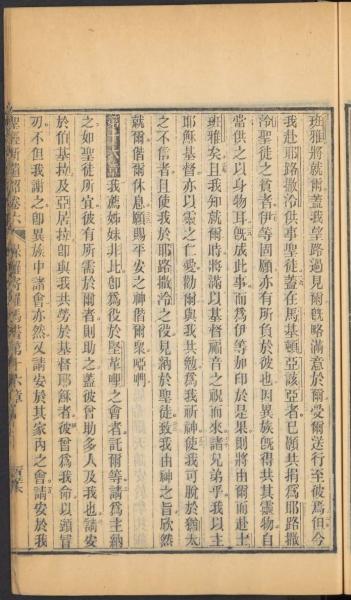 班雅將就爾蓋我享路過見爾旣略滿意於爾受爾送行至彼爲但今
我赴耶路撒冷供事聖徒蓋在馬基頓亞該亞者已願共捐爲耶路撒
冷聖徒之貧者伊等固願亦有所負於彼也因異族旣得共其靈物自
當供之以身物耳旣成此事而爲伊等加印於是果則將由爾而赴士
班雅矣且我知就爾時將滿以基督福音之祝而來諸兄弟乎我以主
耶穌基督亦以靈之仁愛勸爾與我共勉爲我祈神使我可脫於猶太
之不信者且使我於耶路撒冷之役見納於聖徒致我由神之旨欣然
就爾偕爾休息願賜平安之神偕爾衆啞𠵽
第十六章 我薦姊妹非比卽爲役於堅革哩之會者託爾等請爲主納
之如聖徒所宜彼有所需於爾者則助之蓋彼曾助多人及我也請安
於伯基拉及亞居拉卽與我共勞於基督耶穌者彼曾爲我命以頸冒
刃不但我謝之卽異族中諸會亦然又請安於其家內之會請安於我
聖經新遺詔卷六 保羅寄羅馬書第十六章